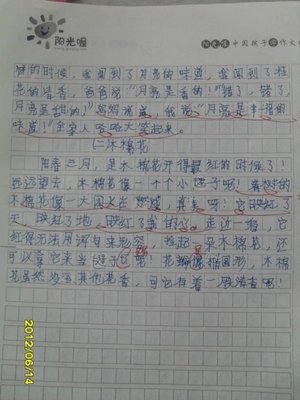 阳光喔
阳光喔中国孩子作文
的时候，爸闻到了月亮的味道，爸闻到了桂
花的清香，爸爸说“月亮是香的！”错了，错了，
月亮是甜的！”妈妈说，她说：“月亮是幸福的
味道！”全家人哈哈大笑起来。
(二)木棉花
阳春三月，是木棉花开得最红的时候了！
远远望去，木棉花像一个个小毽子呢！春天的
木棉花像一大团火在燃烧，真美呀！它映红了
天，映红了地，映红了我的心。走近一看，它
红得无法用词句来形容，捡起一朵木棉花，还
可以拿它来当毽子玩呢！花瓣像椭圆形，木棉
花虽然没有其他花香，可它有着一股清香呢！
2012/06/14